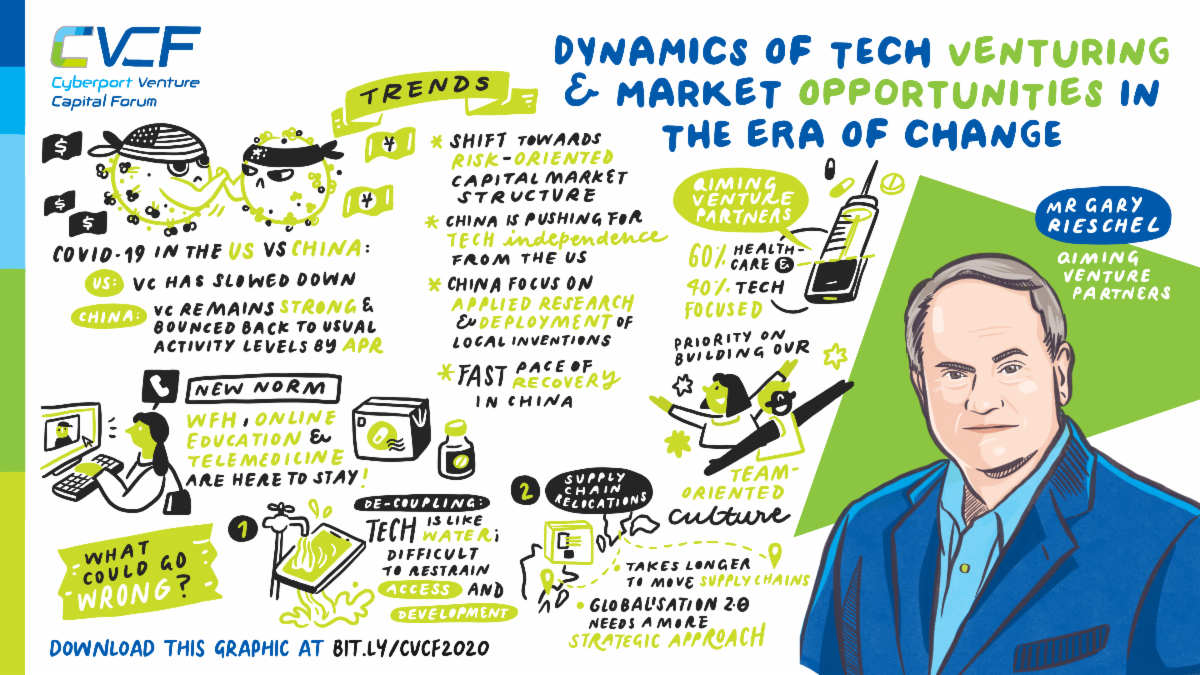 CVCF
Cyberport Venture
Capital Forum
DYNAMICS OF TECH VENTURING
& MARKET OPPORTUNITIES IN
THE ERA OF CHANGE
TRENDS
$
$
$
¥
¥
COVID-19 IN THE US VS CHINA:
US: VC HAS SLOWED DOWN
CHINA: VC REMAINS STRONG &
BOUNCED BACK TO USUAL
ACTIVITY LEVELS BY APR
* SHIFT TOWARDS
RISK-ORIENTED
CAPITAL MARKET
STRUCTURE
* CHINA IS PUSHING FOR
TECH independence
FROM THE US
* CHINA FOCUS ON
APPLIED RESEARCH
& DEPLOYMENT OF
LOCAL INVENTIONS
* FAST PACE OF
RECOVERY
IN CHINA
QIMING
VENTURE
PARTNERS
60% HEALTH-
CARE &
40% TECH
FOCUSED
PRIORITY ON
BUILDING OUR
TEAM-
ORIENTED
culture
MR GARY
RIESCHEL
QIMING
VENTURE
PARTNERS
NEW NORM
WFH, ONLINE
EDUCATION &
TELEMEDICINE
ARE HERE TO STAY!
WHAT
COULD GO
WRONG?
1
DE-COUPLING:
TECH IS LIKE
WATER;
DIFFICULT
TO RESTRAIN
ACCESS AND
DEVELOPMENT
2
SUPPLY
CHAIN
RELOCATIONS
• TAKES LONGER
TO MOVE SUPPLY CHAINS
• GLOBALISATION 2.0
NEEDS A MORE
STRATEGIC APPROACH
DOWNLOAD THIS GRAPHIC AT BIT.LY/CVCF2020